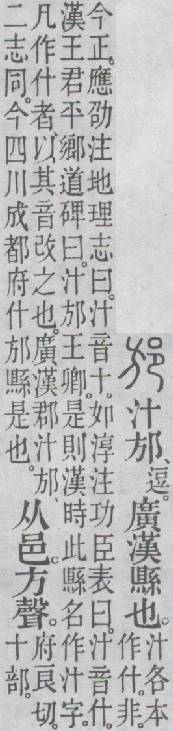 邡 汁邡、逗。廣漢縣也。汁各本作什。非。
今正。應劭注地理志曰。汁音十。如淳注功臣表曰。汁音什。
漢王君平鄉道碑曰。汁邡王卿。是則漢時此縣名作汁字。
凡作什者、以其音改之也。廣漢郡汁邡
二志同。今四川成都府什邡縣是也。
从邑。方聲。府良切。十部。